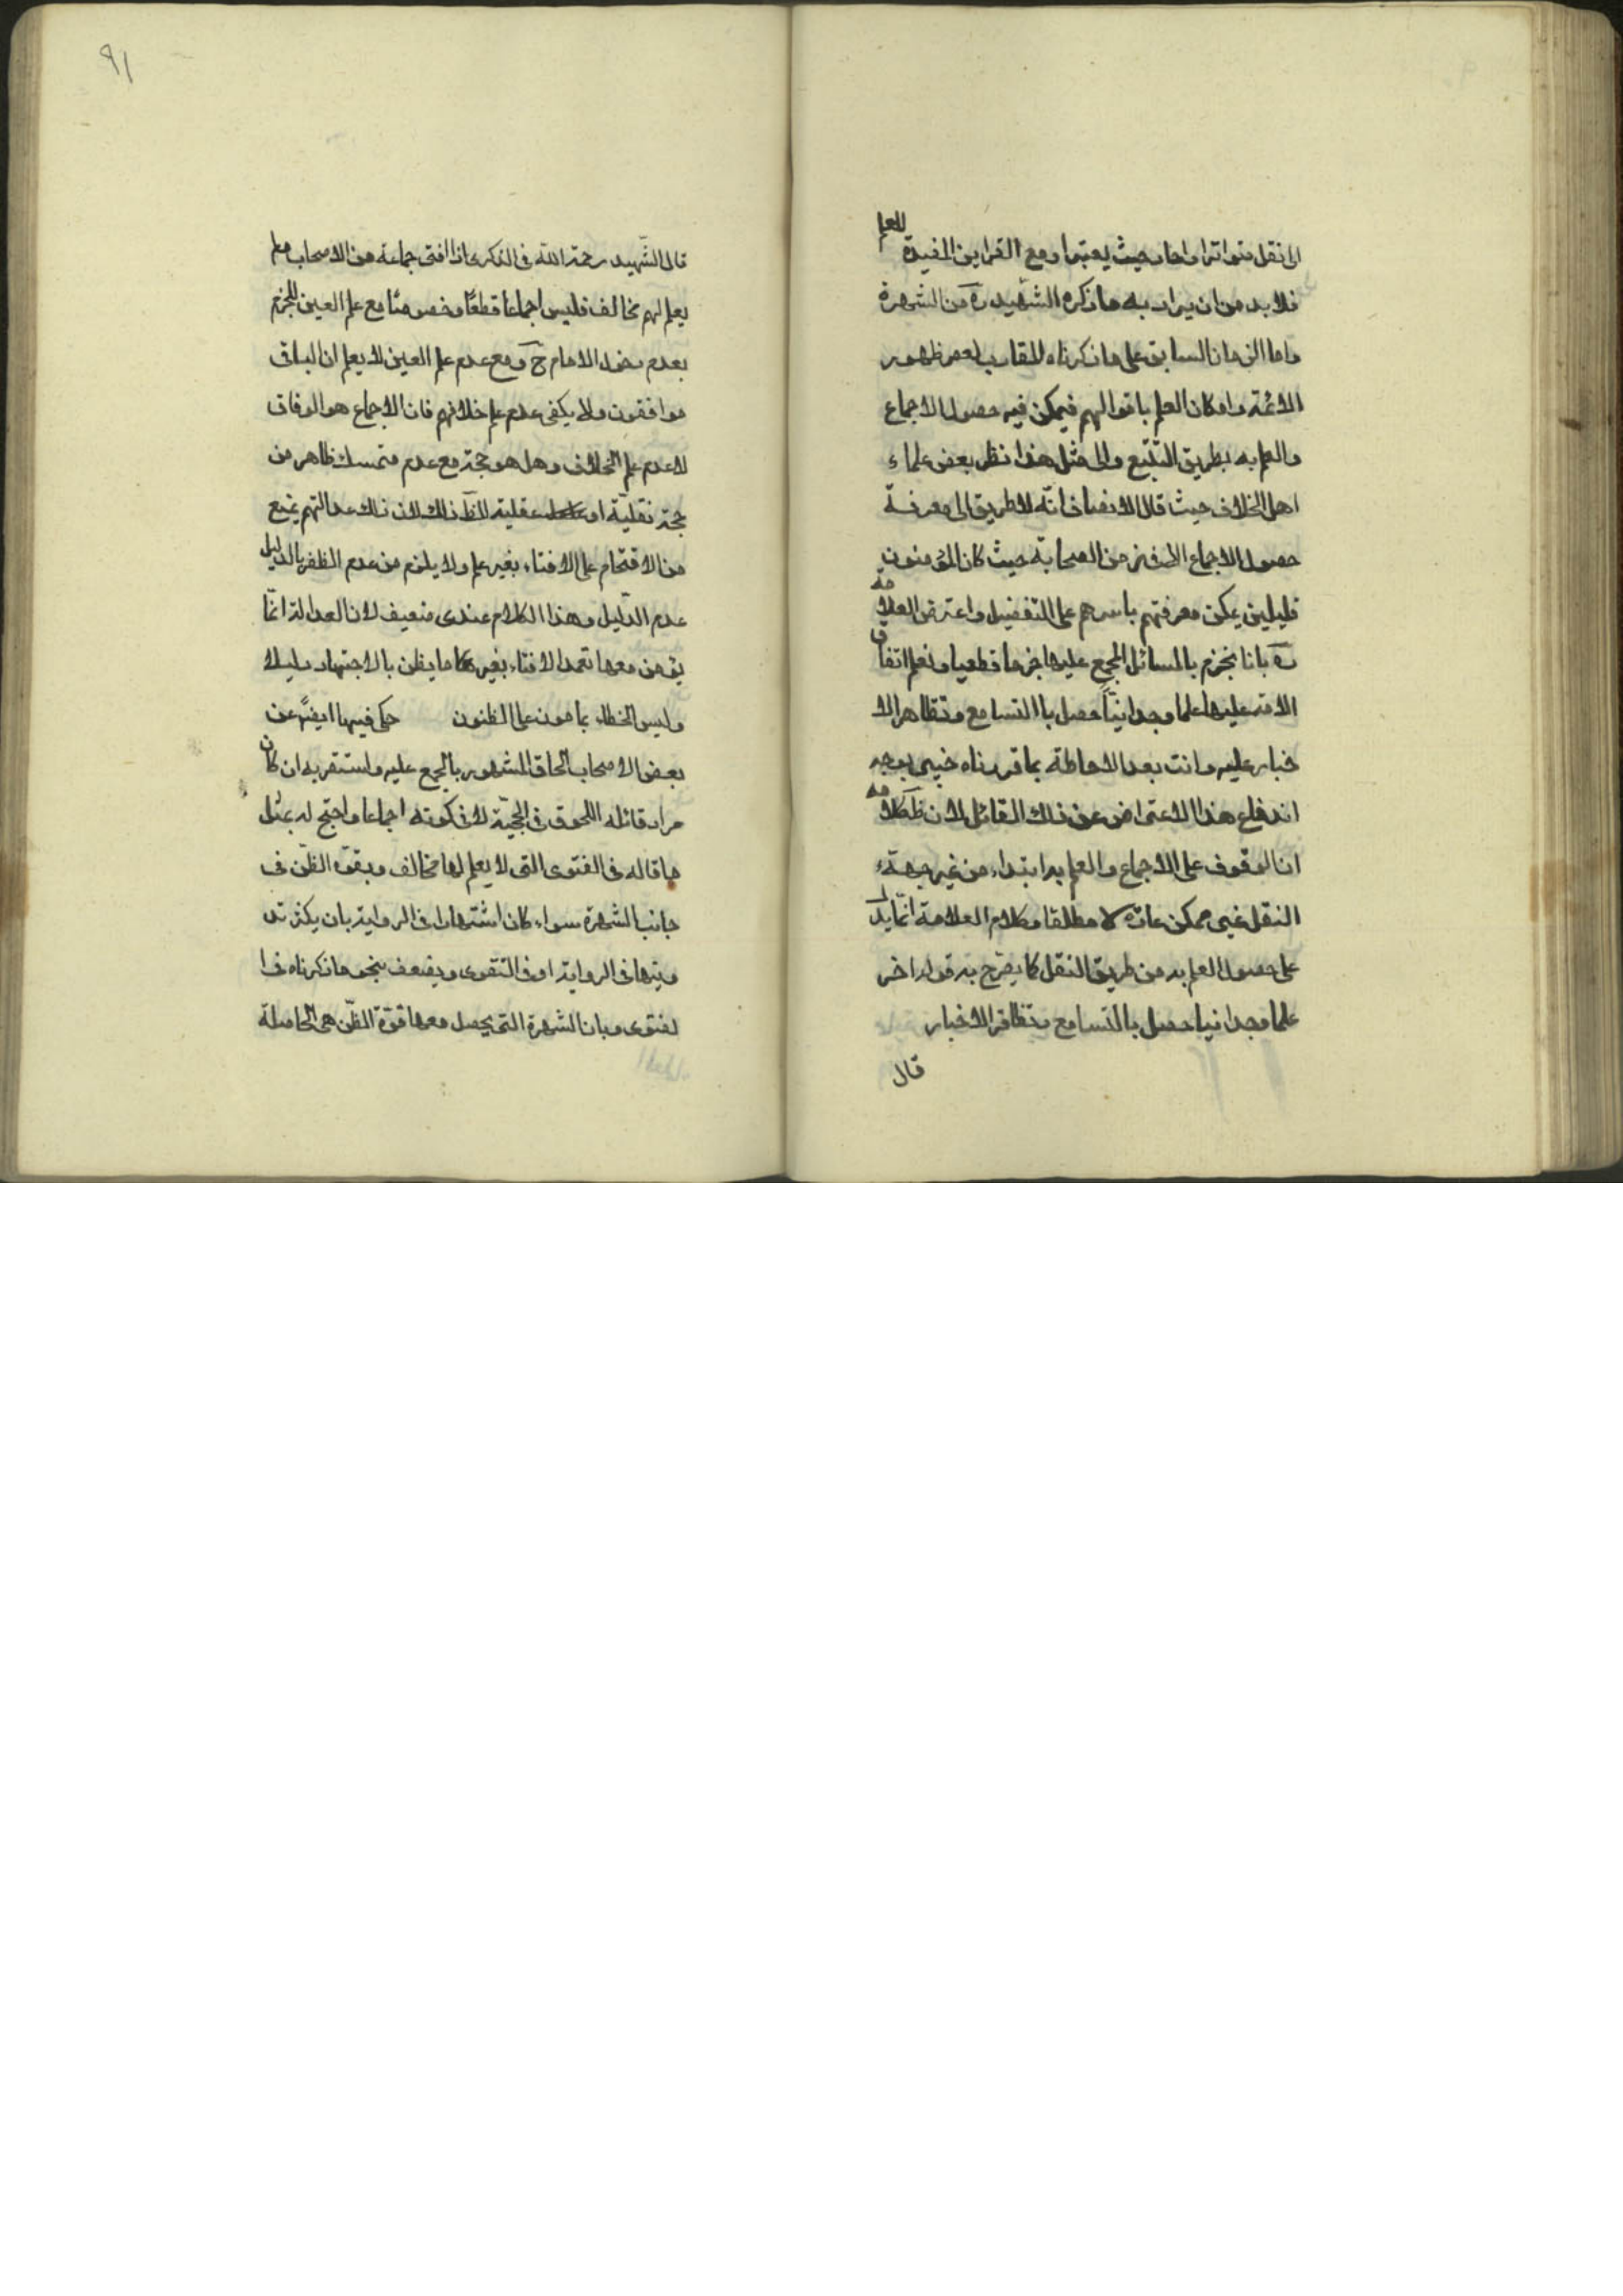 الى نقل متواتر او احاد حيث يعتبر او مع القراين المفيدة للعلم
فلا بد من ان يراد به ما ذكره الشهيد ره من الشهرة
واما الزمان السابق على ما ذكرناه المقارب لعصر ظهور
الائمة وامكان العلم باقوالهم فيمكن فيه حصول الاجماع
والعلم به بطريق التتبع والى مثل هذا نظر بعض علماء
اهل الخلاف حيث قال الانصاف انه لا طريق الى معرفة
حصول الاجماع الا فى زمن الصحابة حيث كان المؤمنون
قليلين يمكن معرفتهم باسرهم على التفضيل واعترض العلامه
ره بانا نجزم بالمسائل المجمع عليها جزما قطعيا ونعلم اتفاق
الامة عليها علما وجدانيا حصل باالتسامع وتظاهر الا
خبار عليه وانت بعد الاحاطة بما قررناه خبير بوجه
اندفاع هذا الاعتراض عن ذلك القائل لان ظ كلامه
ان الوقوف على الاجماع والعلم به ابتداء من غير جهة
النقل غير ممكن عادة لا مطلقا وكلام العلامة انما يدل
على حصول العلم به من طريق النقل كما يصرح به قوله اخر
علما وجدانيا حصل بالتسامع وتظافر الاخبار
قال
٩١
قال الشهيد رحمة الله فى الذكرى اذا افتى جماعة من الاصحاب ولم
يعلم لهم مخالف فليس اجماعا قطعا وخصوصا مع علم العين للجزم
بعدم دخول الامام ح ومع عدم علم العين لا يعلم ان الباقى
موافقون ولا يكفى عدم علم خلافهم فان الاجماع هو الوفاق
لا عدم علم الخلاف وهل هو حجة مع عدم متمسك ظاهر من
حجة نقلية او عقلية الظ ذلك لان ذلك عدالتهم يمنع
من الاقتحام على الافتاء بغير علم ولا يلزم من عدم الظفر بالدليل
عدم الدليل وهذا الكلام عندى ضعيف لان العدالة انما
يؤمن معها تعمد الافتاء بغير ما يظن بالاجتهاد دليلا
وليس الخطاء بمامون على الظنون حكى فيها ايضا عن
بعض الاصحاب الحاق المشهور بالمجمع عليه واستقربه ان كان
مراد قائله اللحوق فى الحجية لا فى كونه اجماعا واحتج له بمثل
ما قاله فى الفتوى التى لا يعلم لها مخالف وبقوة الظن فى
جانب الشهرة سواء كان اشتهارا فى الرواية بان يكثر تد
وينها فى الرواية او فى التقوى ويضعف بنحو ما ذكرناه فى ا
لفتوى وبان الشهرة التى يحصل معها قوة الظن هى الحاصلة